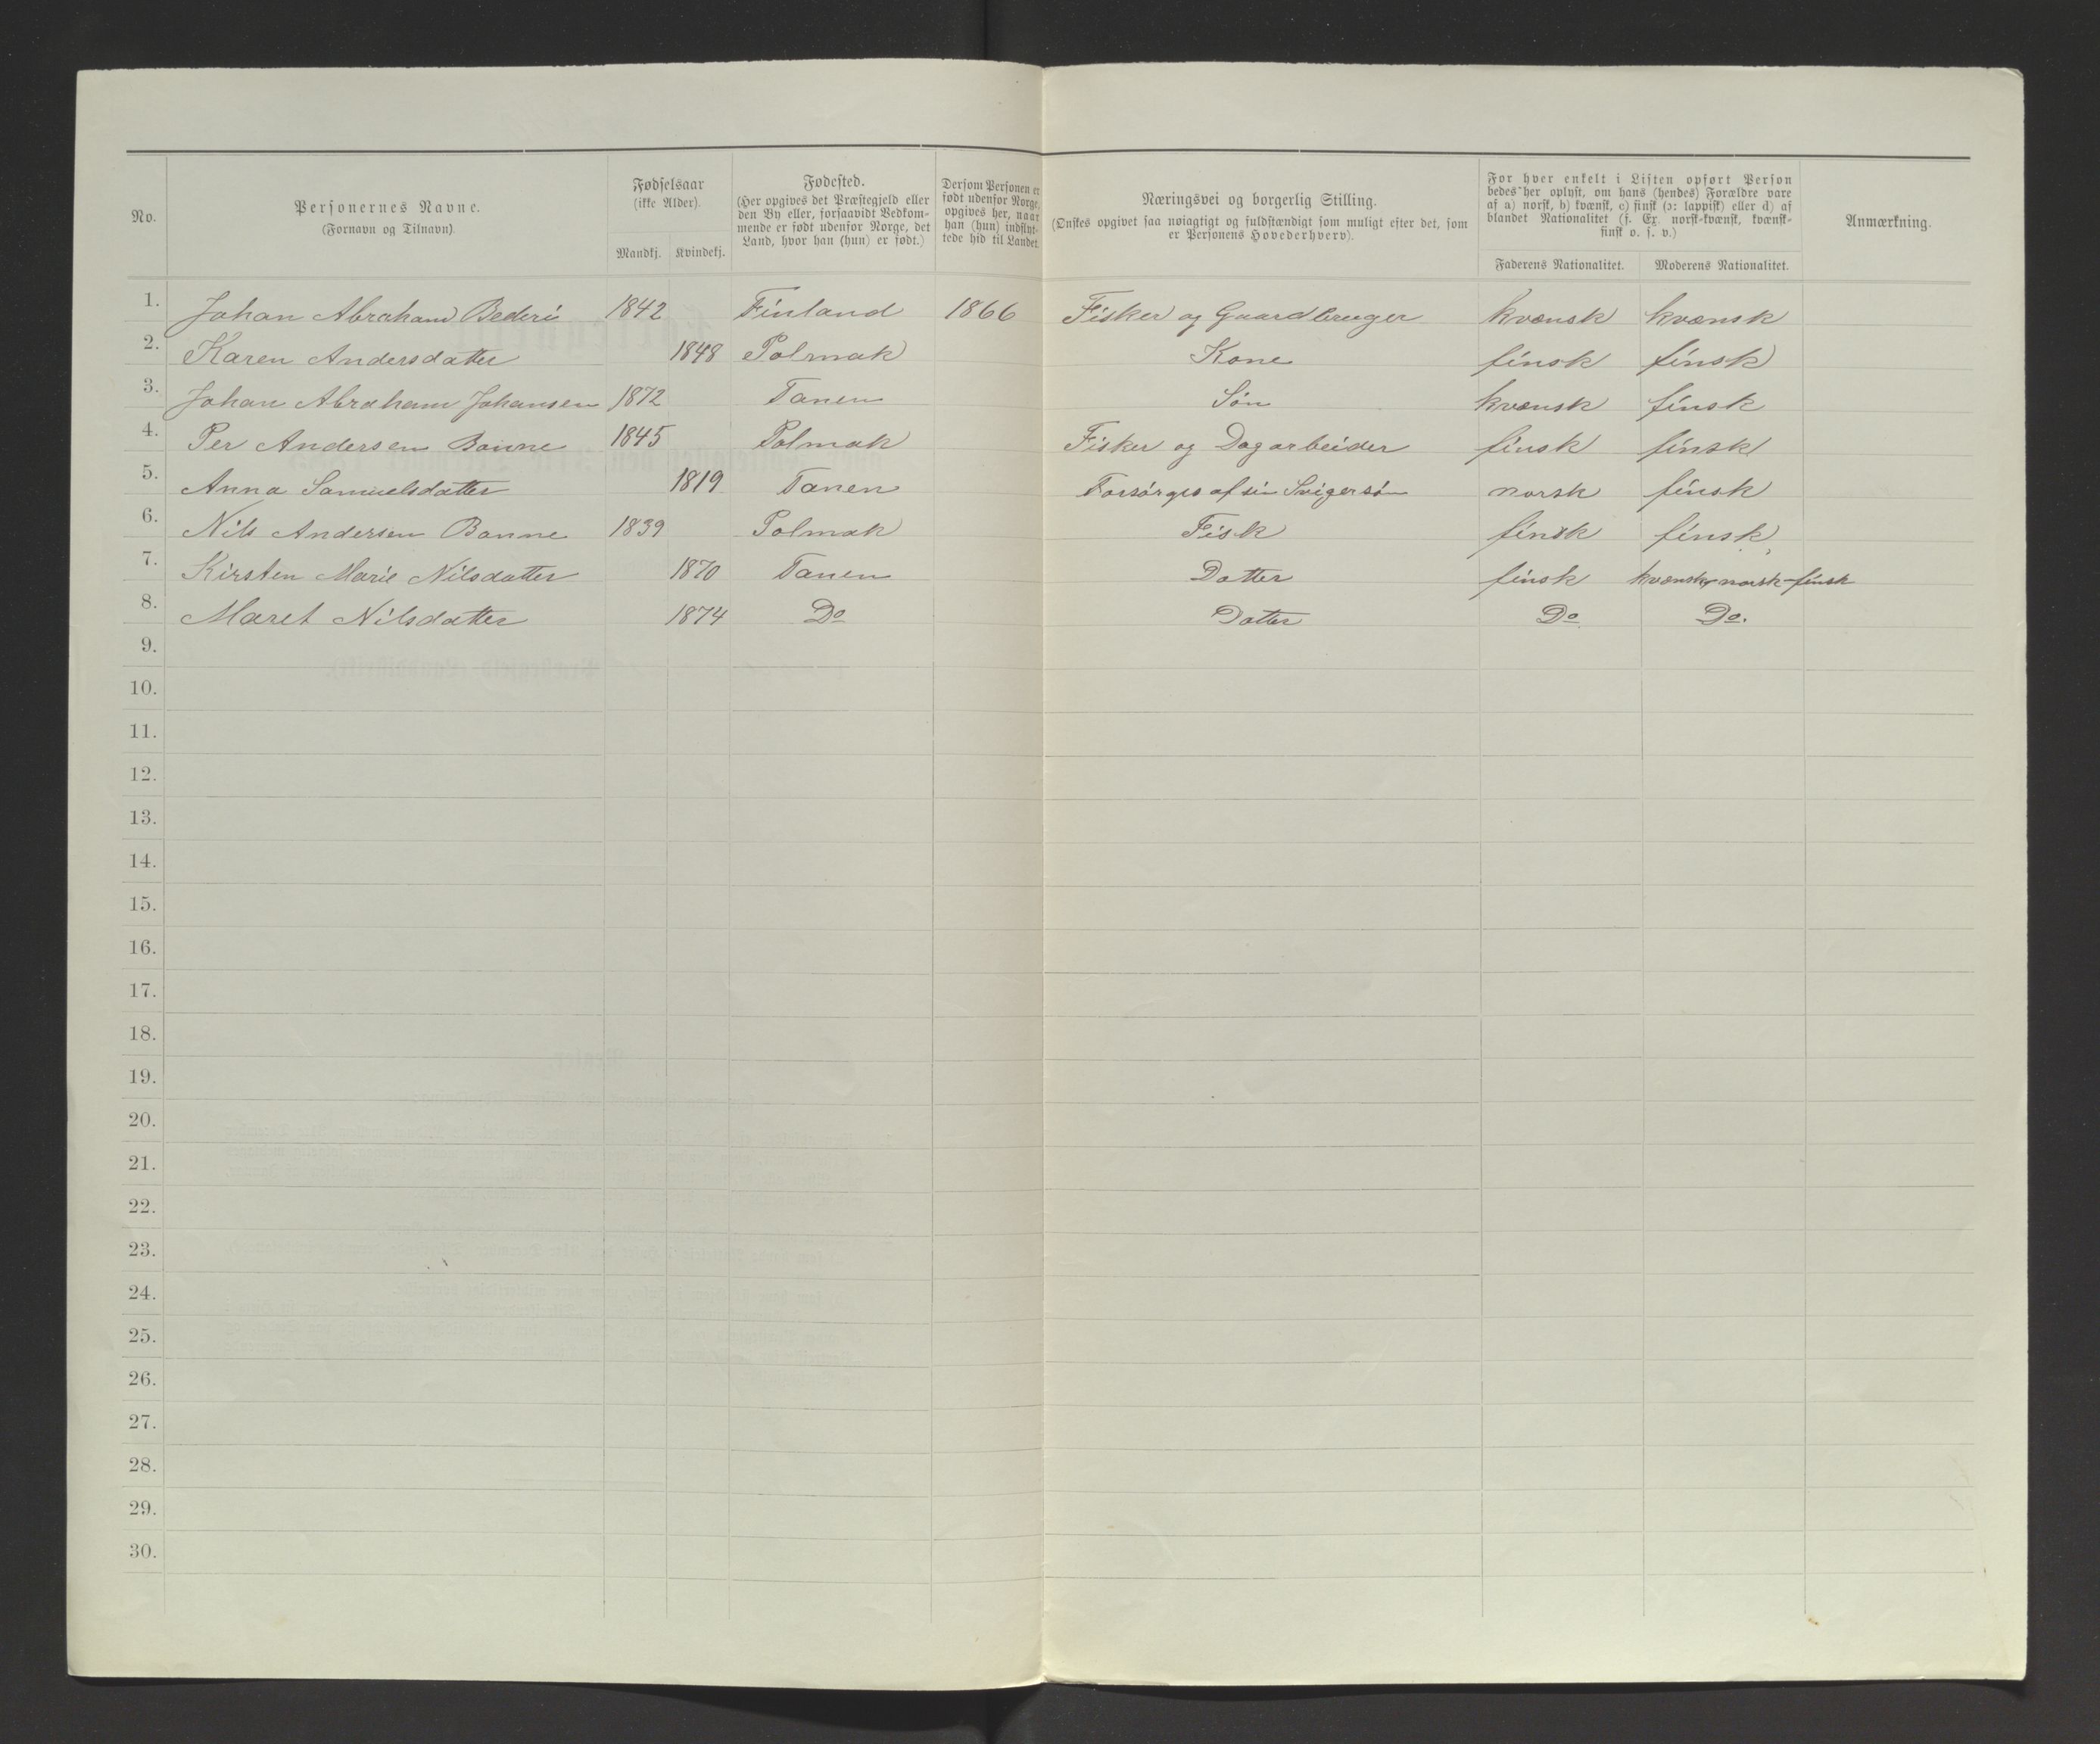 No.
Personernes Navne.
(Fornavn og Tilnavn).
Fødselsaar
(ikke Alder).
Mandkj. Kvindekj.
Fødested.
(Her opgives det Præstegjeld eller
den By eller, forsaavidt Vedkom-
mende er født udenfor Norge, det
Land, hvor han (hun) er født.)
Dersom Personen er
født udenfor Norge,
opgives her, naar
han (hun) indflyt-
tede hid til Landet.
Næringsvei og borgerlig Stilling.
(Ønskes opgivet saa nøiagtigt og fuldstændigt som muligt efter det, som
er Personens Hovederhverv).
For hver enkelt i Listen opført Person
bedes her oplyst, om hans (hendes) Forældre vare
af a) norsk, b) kvænsk, c) finsk (ɔ: lappisk) eller d) af
blandet Nationalitet (f. Ex. norsk-kvænsk, kvænsk-
finsk o. s. v.)
Faderens Nationalitet. Moderens Nationalitet.
Anmærkning.
1. Johan Abraham Bederi 1842 Finland 1866 Fisker og Gaardbruger kvænsk kvænsk
2. Karen Andersdatter 1848 Polmak Kone finsk finsk
3. Johan Abraham Johansen 1872 Tanen Søn kvænsk finsk
4. Per Andersen Bonne 1845 Polmak Fisker og Dagarbeider finsk finsk
5. Anna Samuelsdatter 1819 Tanen Forsørges af sin Svigersøn norsk finsk
6. Nils Andersen Bonne 1839 Polmak Fisk finsk finsk
7. Kirsten Marie Nilsdatter 1870 Tanen Datter finsk kvænsk-norsk-finsk
8. Maret Nilsdatter 1874 Do Datter Do Do.
9.
10.
11.
12.
13.
14.
15.
16.
17.
18.
19.
20.
21.
22.
23.
24.
25.
26.
27.
28.
29.
30.